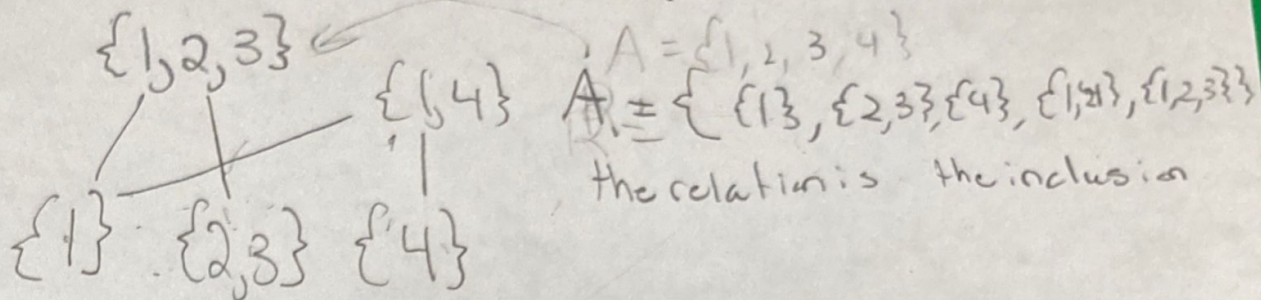 {1,2,3}
A = {1, 2, 3, 4}
{1,4}
A = { {1}, {2,3}, {4}, {1,4}, {1,2,3}}
the relation is the inclusion
{1} {2,3} {4}